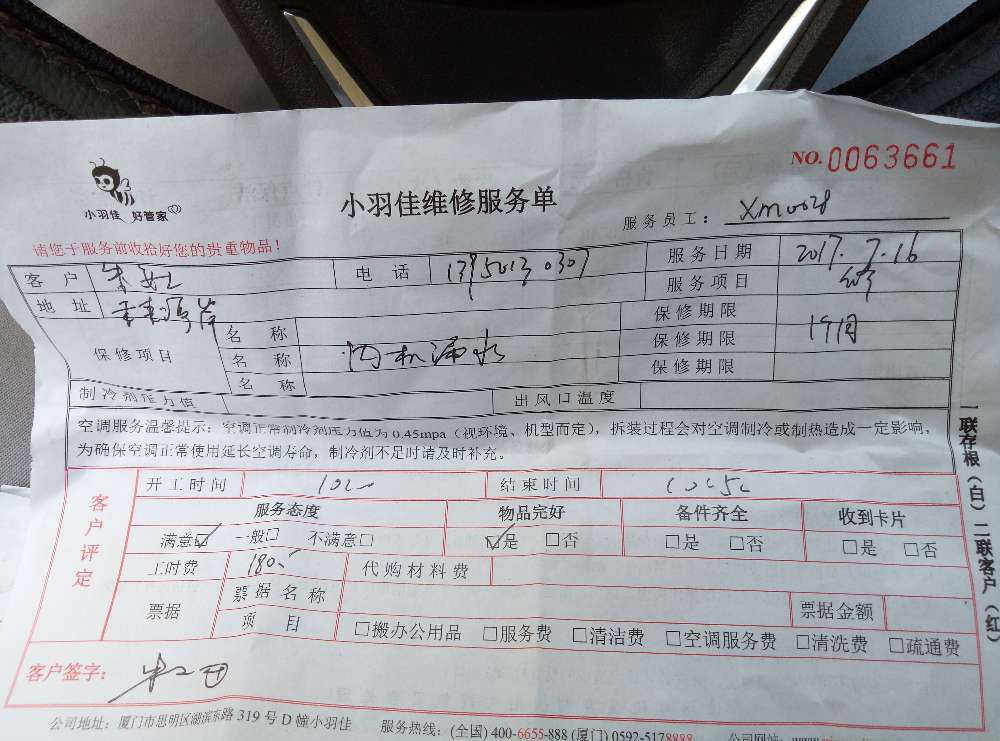 NO.0063661
小羽佳 好管家
小羽佳维修服务单
服务员工：
请您于服务前收拾好您的贵重物品！
客户 朱女士 电话 服务日期 2017.7.16
地址 服务项目
保修项目 名称 保修期限
名称 内机漏水 保修期限 1个月
名称 保修期限
制冷剂压力值 出风口温度
空调服务温馨提示：空调正常制冷剂压力值为0.45mpa（视环境、机型而定），拆装过程会对空调制冷或制热造成一定影响，
为确保空调正常使用延长空调寿命，制冷剂不足时请及时补充。
客户评定
开工时间 结束时间
服务态度 物品完好 备件齐全 收到卡片
满意☑ 一般□ 不满意□ ☑是 □否 □是 □否 □是 □否
工时费 180 代购材料费
票据 票据名称 票据金额
项目 □搬办公用品 □服务费 □清洁费 □空调服务费 □清洗费 □疏通费
客户签字：
公司地址：厦门市思明区湖滨东路319号D幢小羽佳 服务热线：(全国)400-6655-888 (厦门)0592-5178888
一联存根（白）二联客户（红）